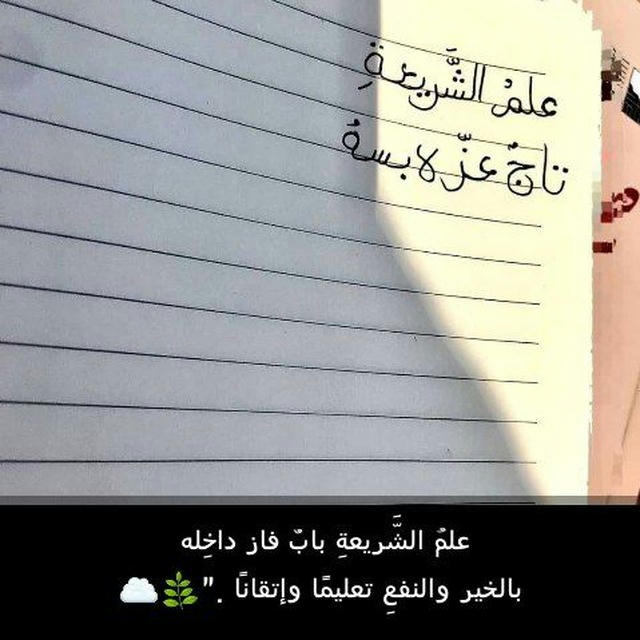 علمُ الشَّريعةِ
تاجٌ عزّ لابسهُ
علمُ الشَّريعةِ بابٌ فاز داخِله
بالخير والنفعِ تعليمًا وإتقانًا . " 🌿☁️